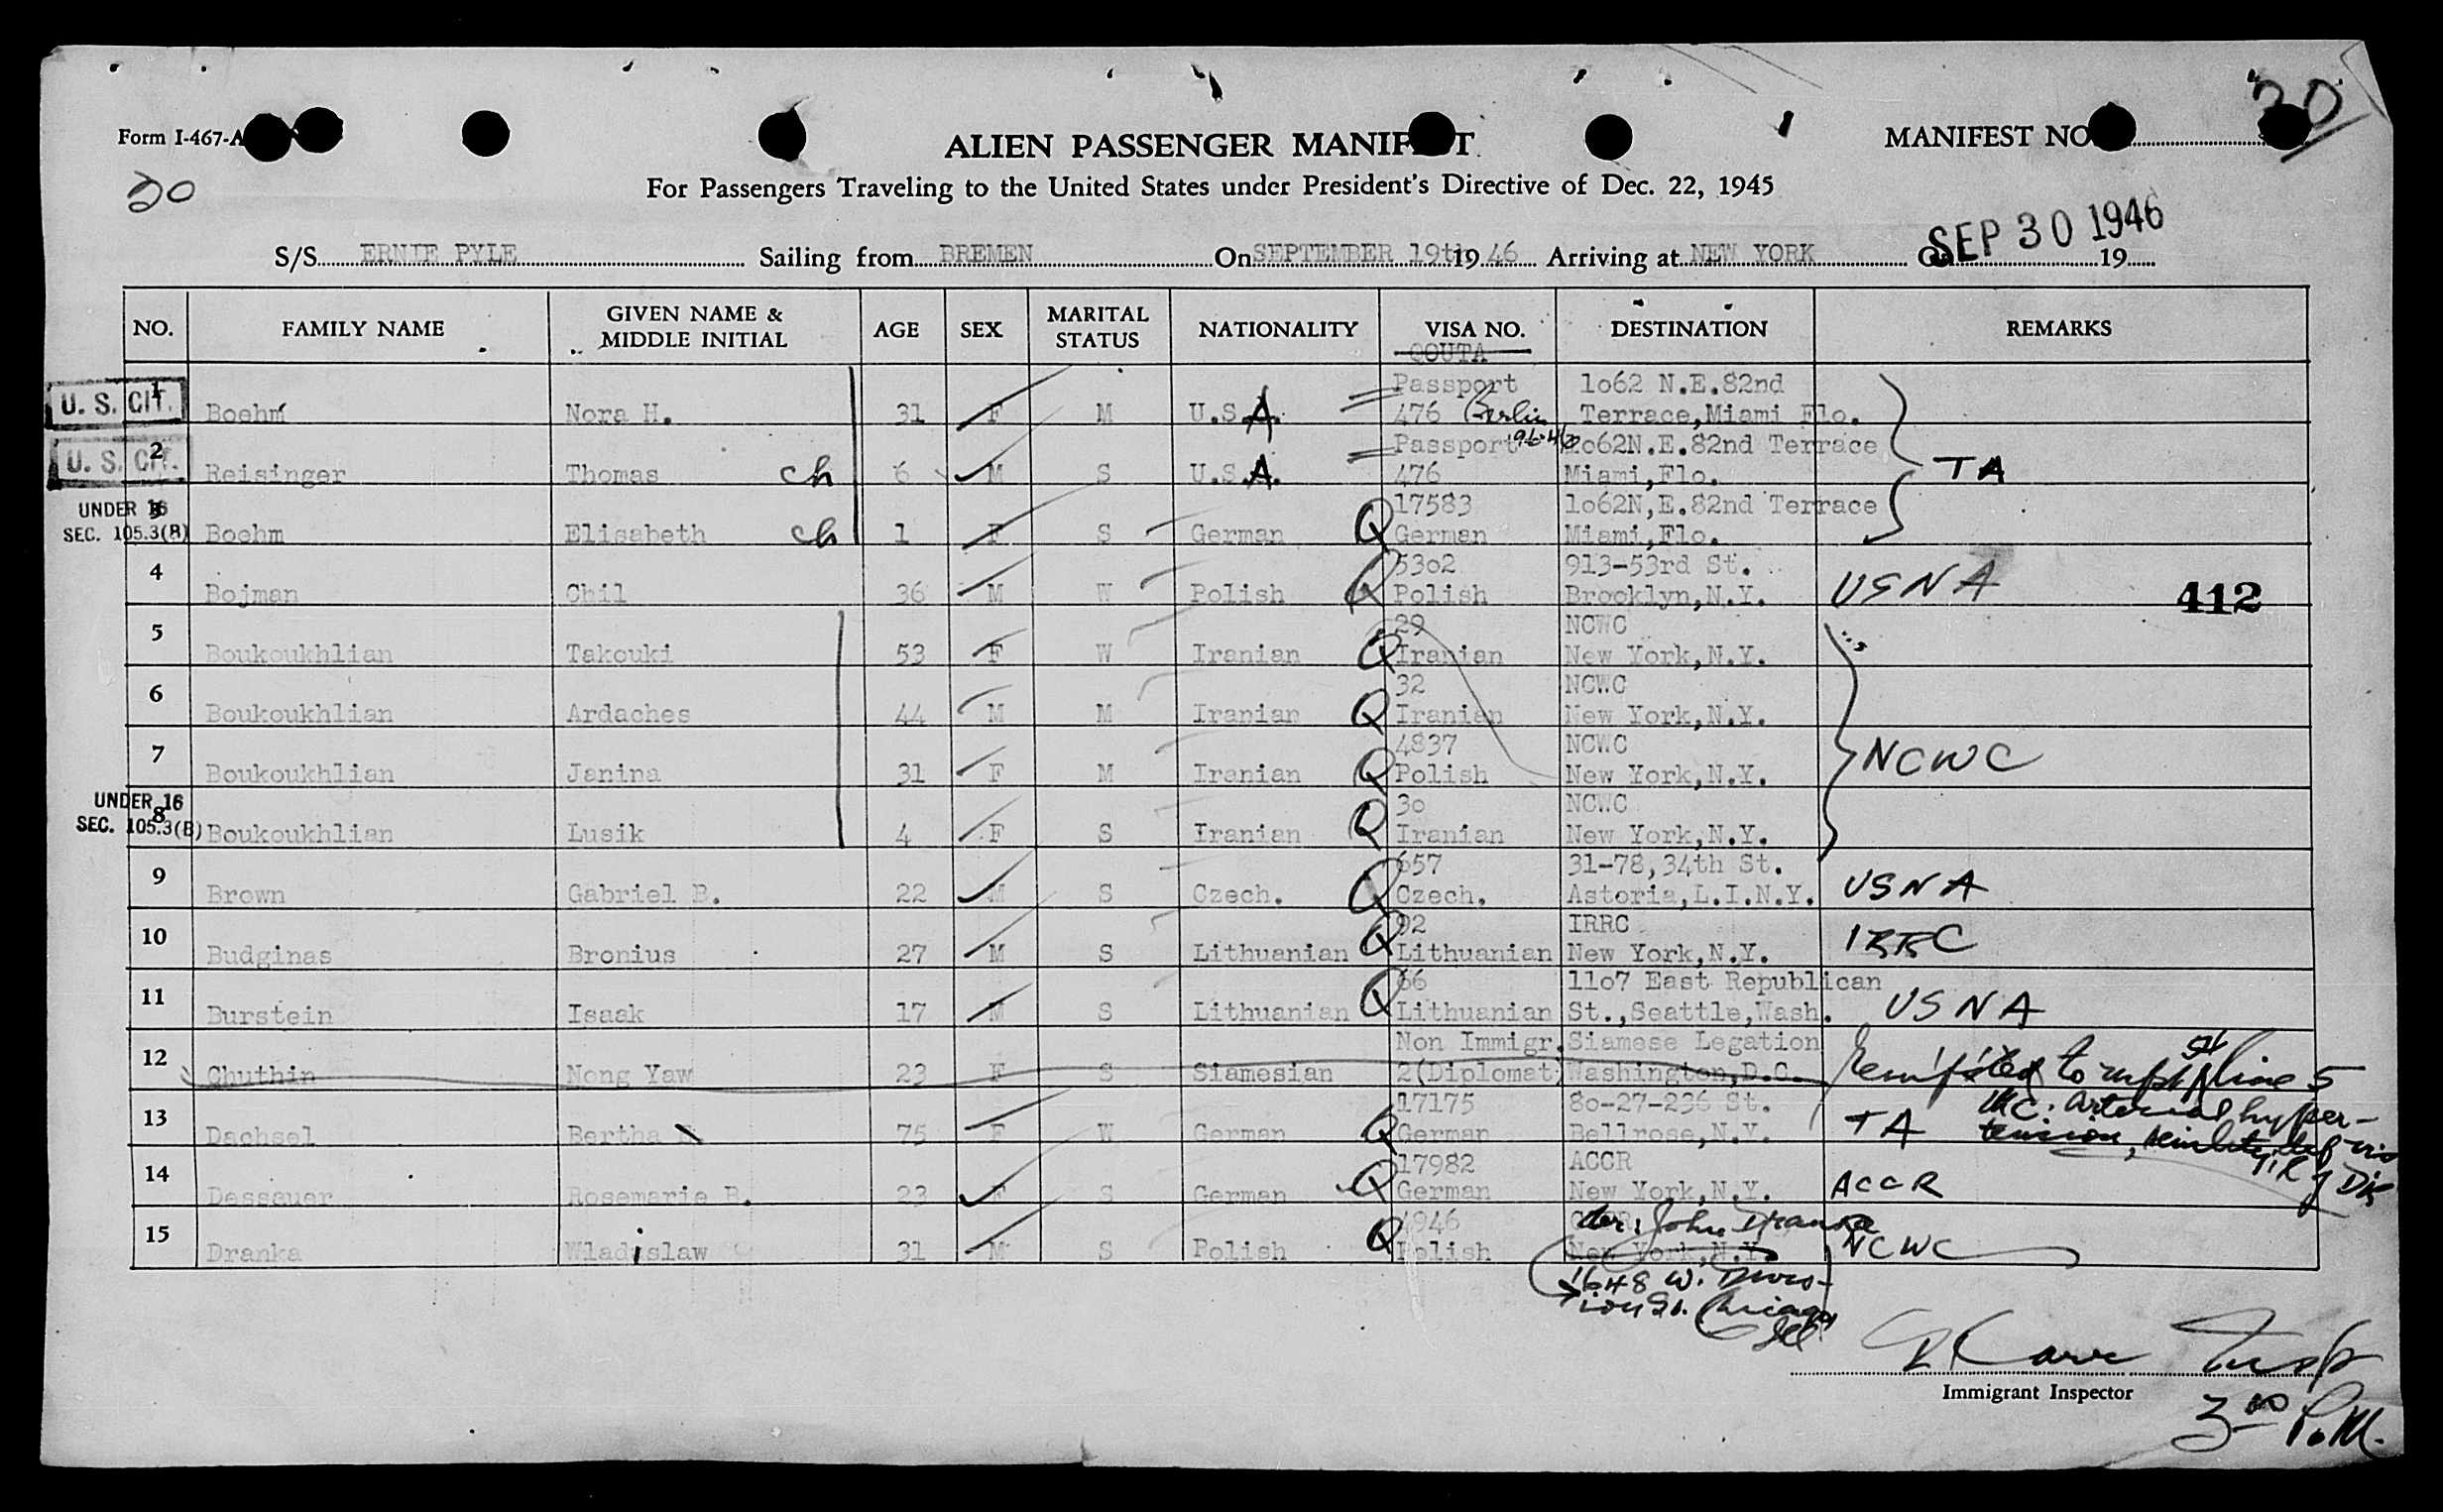 20
Form I-467-A
ALIEN PASSENGER MANIF T
MANIFEST NO
20
For Passengers Traveling to the United States under President's Directive of Dec. 22, 1945
S/S ERNIE PYLE Sailing from BREMEN On SEPTEMBER 19th 19 46 Arriving at NEW YORK SEP 30 1946 19
NO. FAMILY NAME GIVEN NAME & MIDDLE INITIAL AGE SEX MARITAL STATUS NATIONALITY VISA NO. QOUTA DESTINATION REMARKS
U. S. CIT. 1 Passport 1o62 N.E.82nd
Boehm Nora H. 31 F M U.S.A. 476 Berlin Terrace,Miami Flo.
U. S. CIT. 2 Passport 1o62N.E.82nd Terrace
Reisinger Thomas ch 6 M S U.S.A. 476 Miami,Flo. TA
UNDER 16 3 17583 1o62N,E.82nd Terrace
SEC. 105.3(B) Boehm Elisabeth ch 1 F S German Q German Miami,Flo.
4 53o2 913-53rd St.
Bojman Chil 36 M W Polish Q Polish Brooklyn,N.Y. USNA 412
5 29 NCWC
Boukoukhlian Takouki 53 F W Iranian Q Iranian New York,N.Y.
6 32 NCWC
Boukoukhlian Ardaches 44 M M Iranian Q Iranian New York,N.Y.
7 4837 NCWC
Boukoukhlian Janina 31 F M Iranian Q Polish New York,N.Y. NCWC
UNDER 16 8 3o NCWC
SEC. 105.3(B) Boukoukhlian Lusik 4 F S Iranian Q Iranian New York,N.Y.
9 657 31-78,34th St.
Brown Gabriel B. 22 M S Czech. Q Czech. Astoria,L.I.N.Y. USNA
10 92 IRRC
Budginas Bronius 27 M S Lithuanian Q Lithuanian New York,N.Y. IRRC
11 66 11o7 East Republican
Burstein Isaak 17 M S Lithuanian Q Lithuanian St.,Seattle,Wash. USNA
12 Non Immigr. Siamese Legation
Chuthin Nong Yaw 23 F S Siamesian 2(Diplomat) Washington,D.C. to line 5
13 17175 8o-27-236 St. MC. arterial hyper-
Dachsel Bertha 75 F W German Q German Bellrose,N.Y. TA tension, senility
14 17982 ACCR
Dessauer Rosemarie B. 23 F S German Q German New York,N.Y. ACCR
15 4946 John Dranka
Dranka Wladislaw 31 M S Polish Q Polish New York,N.Y. NCWC
1648 W. Divis-
ion St. Chicago
Ill
Insp
Immigrant Inspector
3 00 P.M.